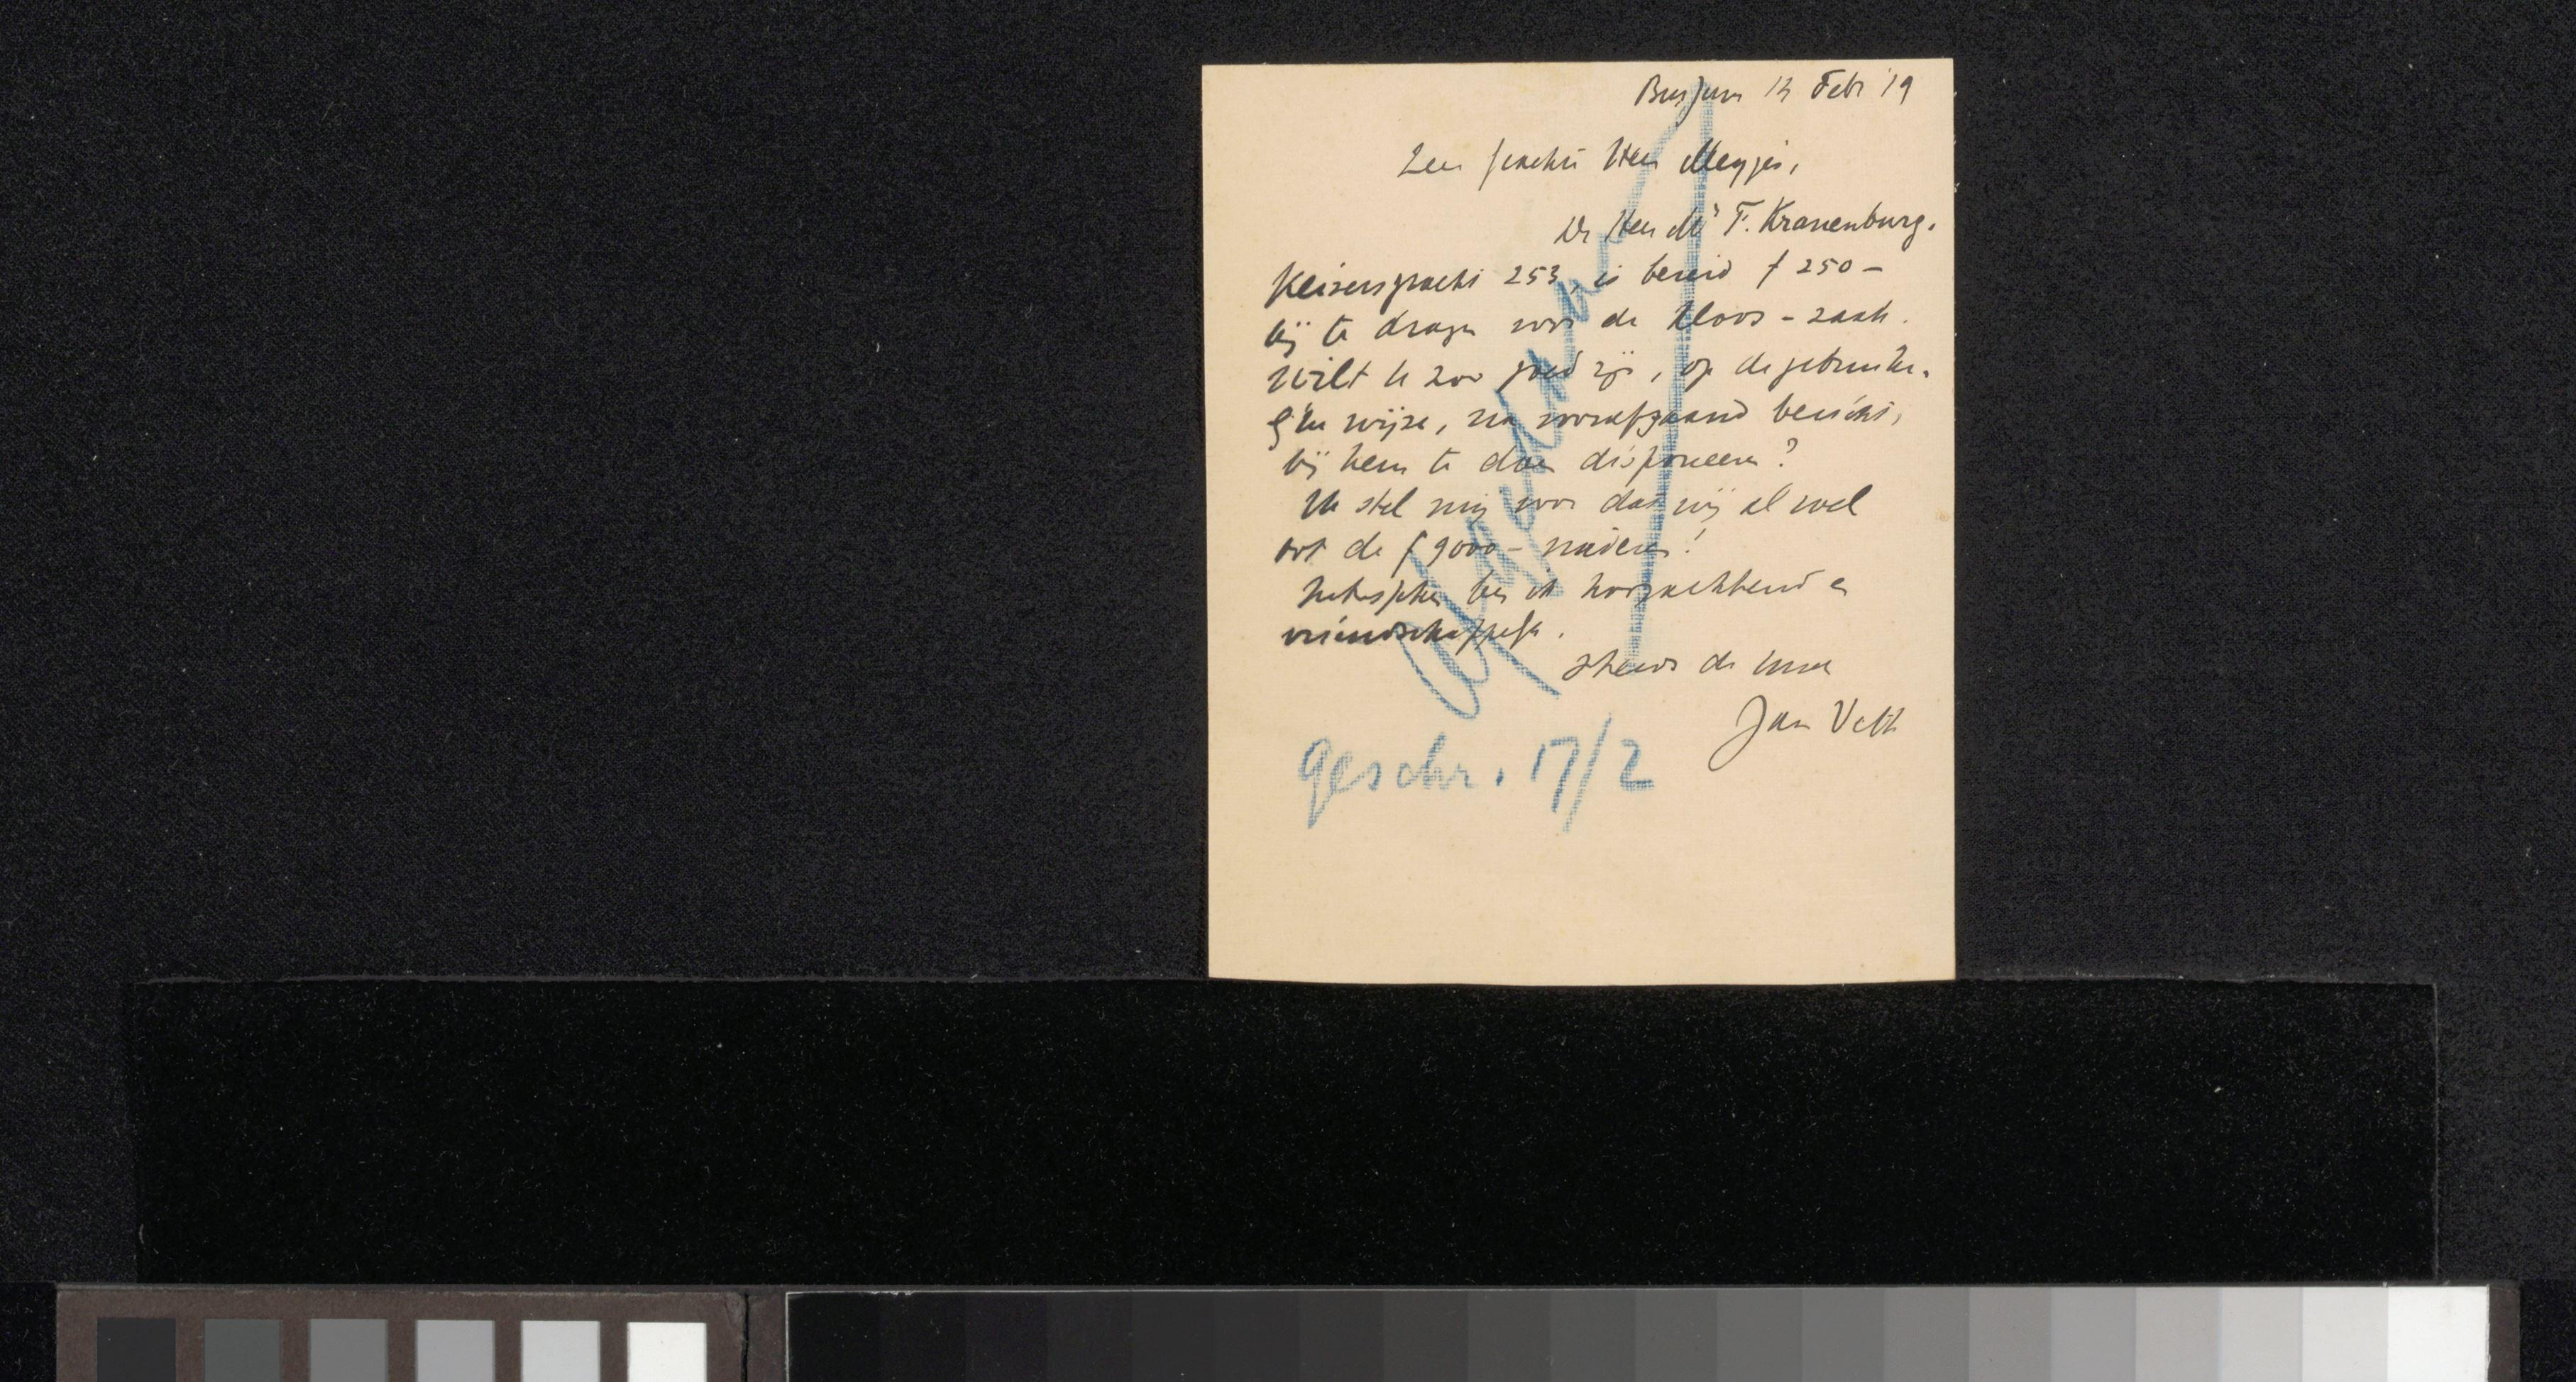 Bussum 13 Febr '19
Zeer geachte Heer Meyjes,
De Heer Mr F. Kranenburg.
Keizersgracht 253, is bereid f 250 -
bij te dragen voor de Kloos - zaak.
Wilt U zoo goed zijn, op de gebruike-
lijke wijze, na voorafgaand bericht,
bij hem te doen disponeeren?
Ik stel mij voor dat wij al wel
tot de f 9000 - naderen!
Intusschen ben ik hoogachtend en
vriendschappelijk.
Steeds de Uwe
Jan Veth
Afgedaan
geschr. 17/2